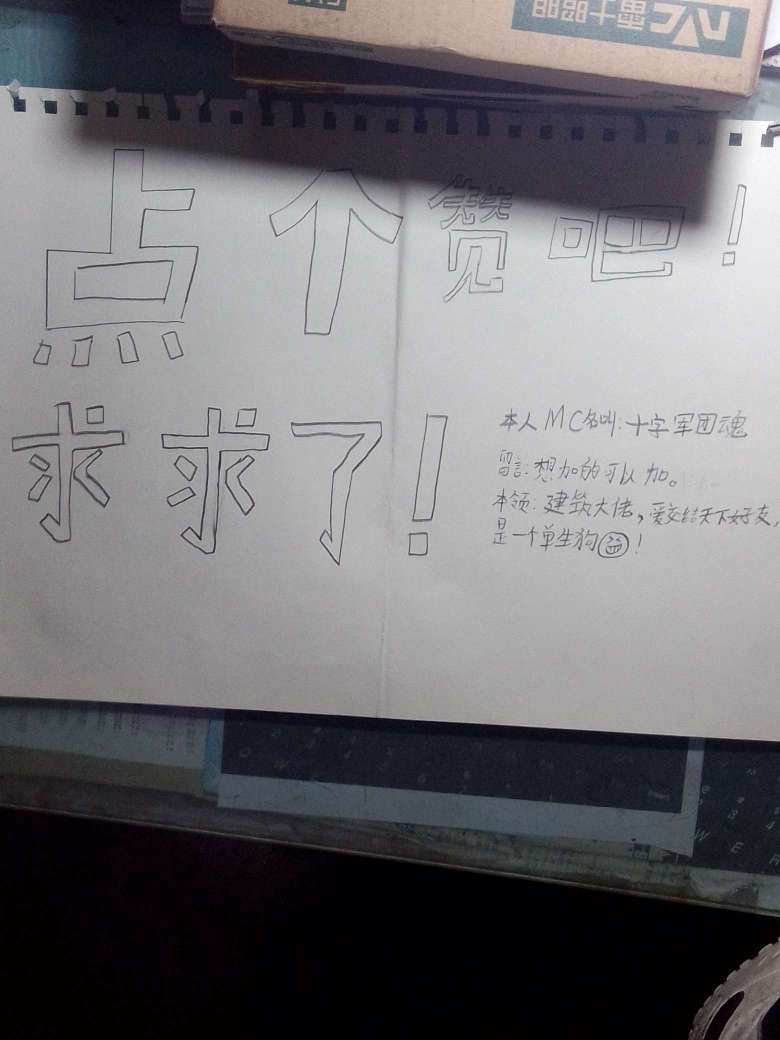 点个赞吧!
求求了!
本人MC名叫:十字军团魂
留言:想加的可以加。
本领:建筑大佬,爱交结天下好友,
是一个单生狗!